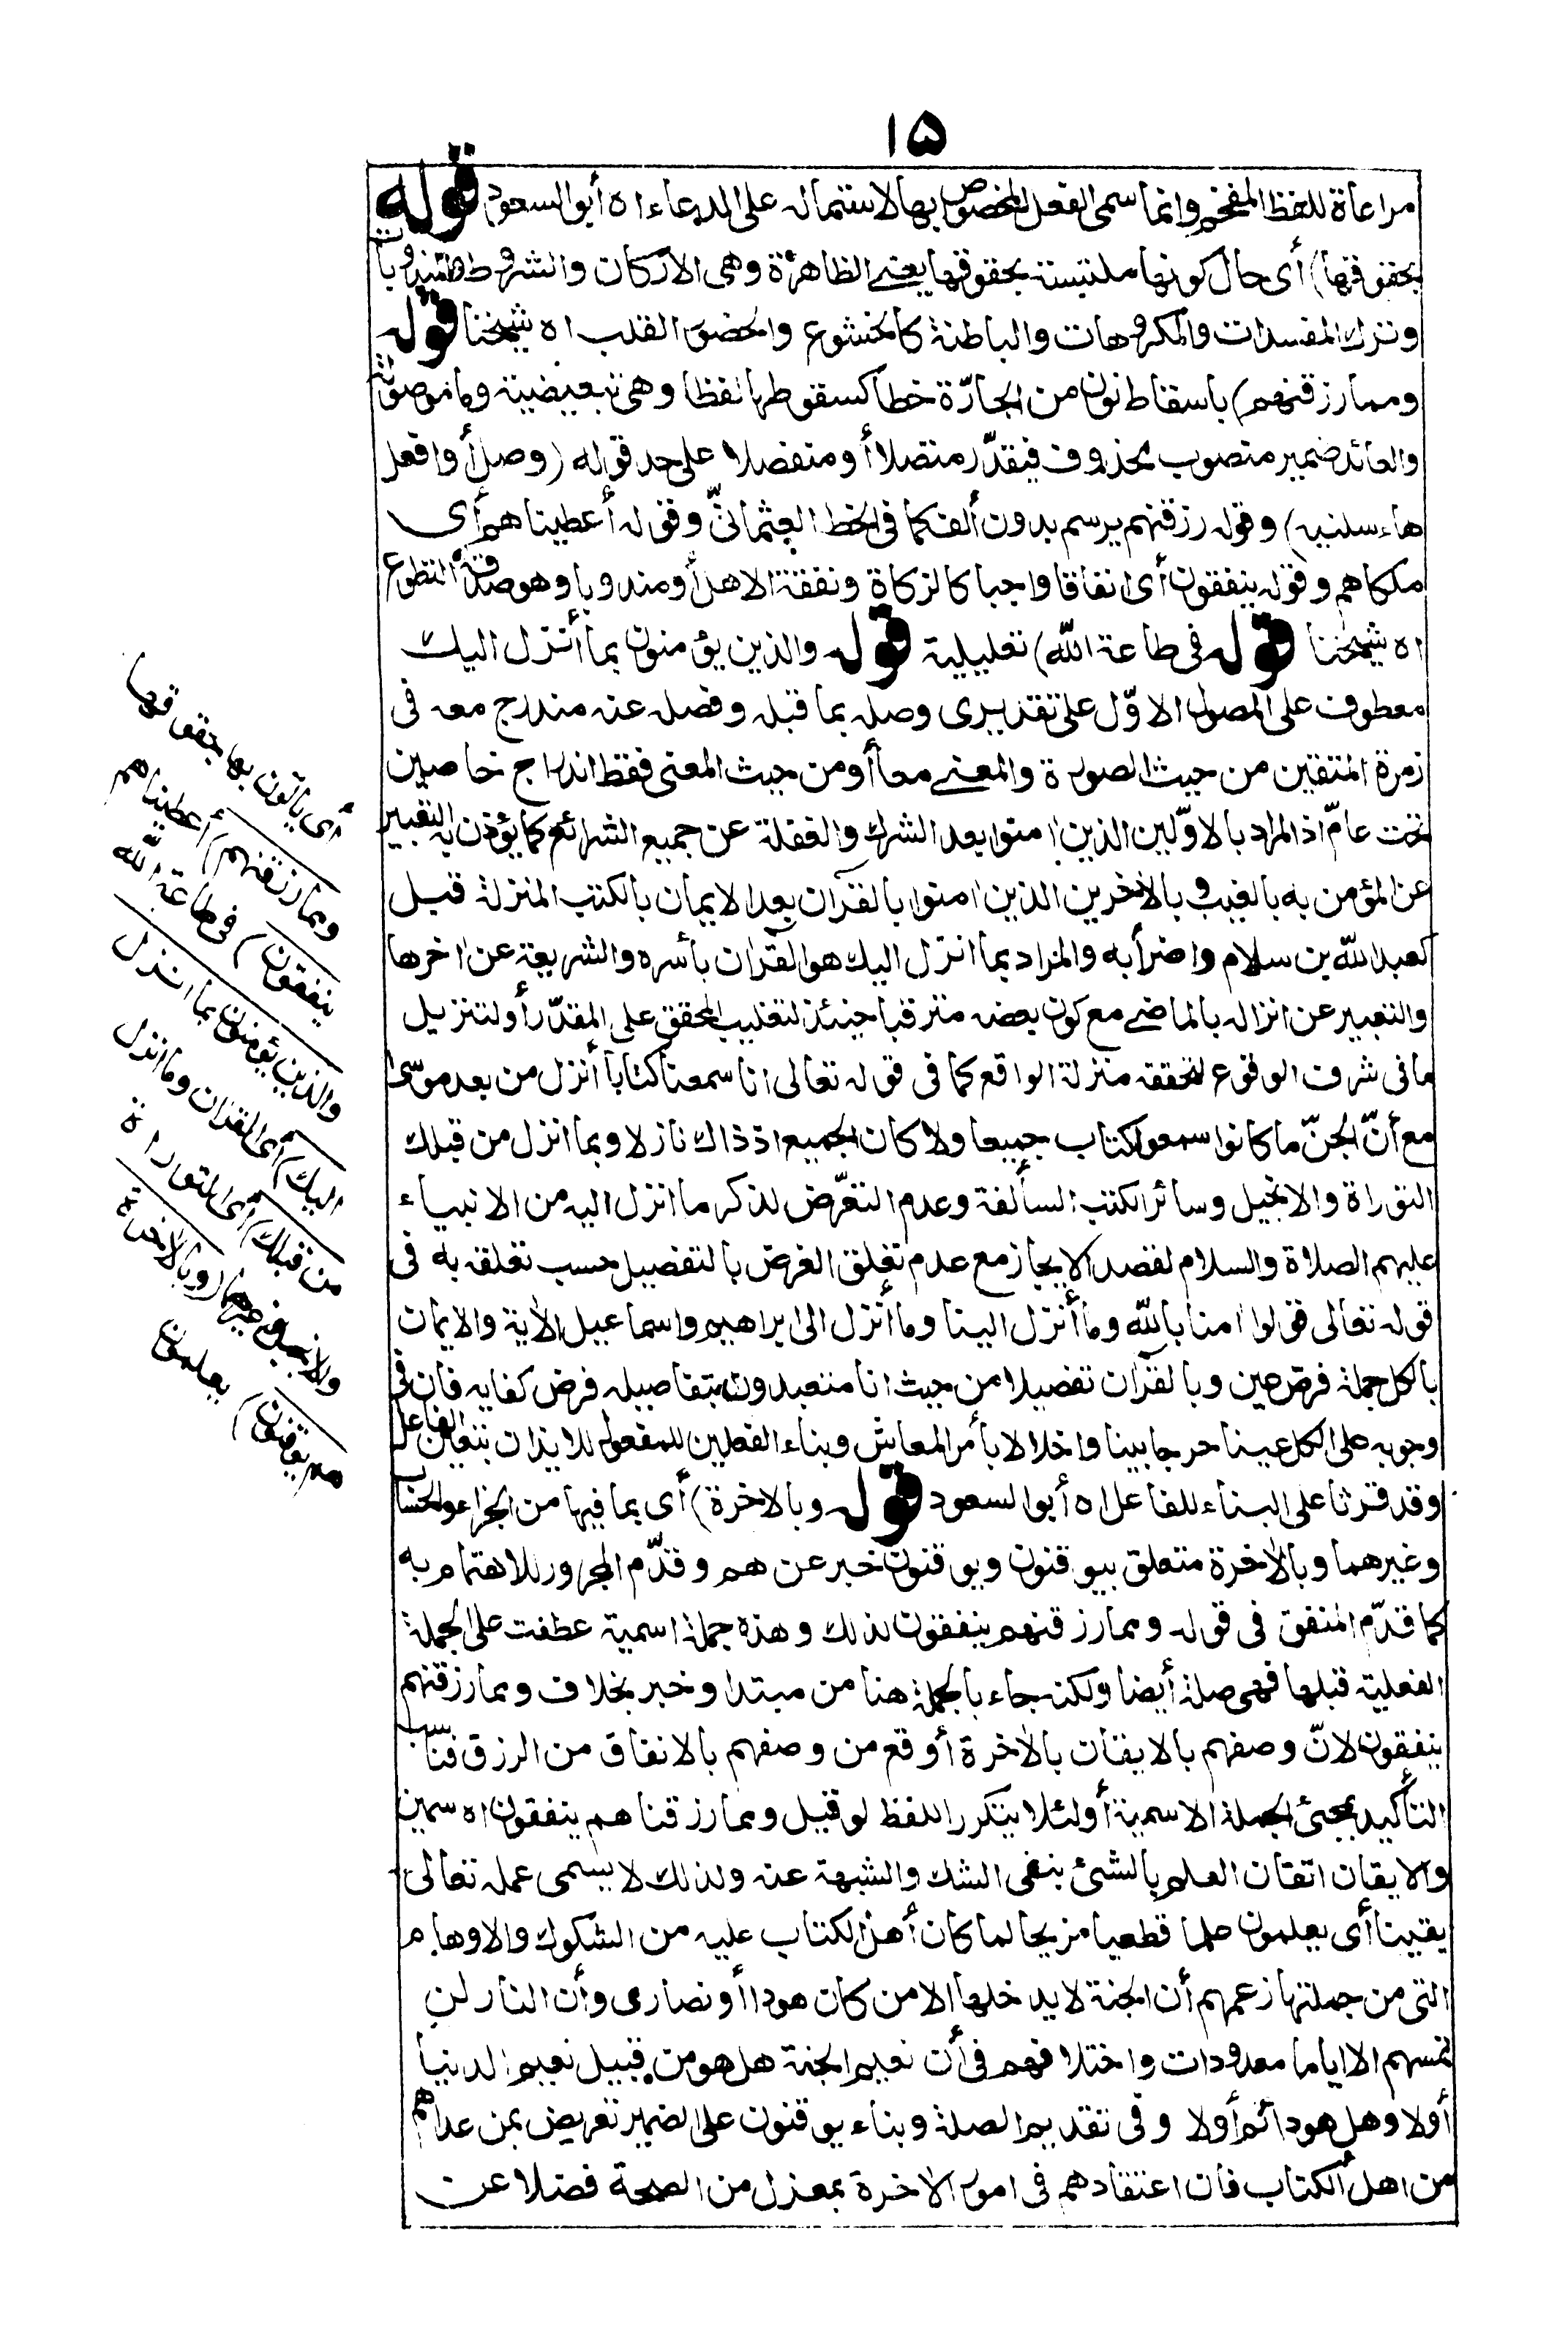 ١٥
مراعاة للفظ المفخم وانما سمى الفعل المخصوص بها لاشتماله على الدعاء اه أبو السعود قوله
بحقوقها) أى حال كونها ملتبسة بحقوقها يعنى الظاهرة وهى الاركان والشروط والمندوبات
وترك المفسدات والمكروهات والباطنة كالخشوع والحضور القلب اه شيخنا قوله
ومما رزقنهم) باسقاط نون من الجارّة خطا كسقوطها لفظا وهى تبعيضية وما موصولة
والعائد ضمير منصوب محذوف فيقدّر متصلا أو منفصلا على حد قوله (وصل أو افصل
هاء سلنيه) وقوله رزقنهم يرسم بدون ألف كما فى الخط العثمانىّ وقوله أعطيناهم أى
ملكاهم وقوله ينفقون أى انفاقا واجبا كالزكاة ونفقة الاهل أو مندوبا وهو صدقة التطوع
اه شيخنا قوله فى طاعة الله) تعليلية قوله والذين يؤمنون بما أنزل اليك
معطوف على الموصول الاوّل على تقديرى وصله بما قبله وفصله عنه مندرج معه فى
زمرة المتقين من حيث الصورة والمعنى معا أو من حيث المعنى فقط اندراج خاصين
تحت عامّ اذ المراد بالاوّلين الذين امنوا بعد الشرك والغفلة عن جميع الشرائع كما يؤذن به التعبير
عن المؤمن به بالغيب وبالآخرين الذين امنوا بالقرآن بعد الايمان بالكتب المنزلة قبل
كعبد الله بن سلام واضرابه والمراد بما انزل اليك هو القرآن بأسره والشريعة عن اخرها
والتعبير عن انزاله بالماضى مع كون بعضه مترقبا حينئذ لتغليب المحقق على المقدّر أو لتنزيل
ما فى شرف الوقوع لتحققه منزلة الواقع كما فى قوله تعالى انا سمعنا كتابا أنزل من بعد موسى
مع أنّ الجنّ ما كانوا سمعوا الكتاب جميعا ولا كان الجميع اذ ذاك نازلا وبما انزل من قبلك
التوراة والانجيل وسائر الكتب السالفة وعدم التعرّض لذكر ما انزل اليه من الانبياء
عليهم الصلاة والسلام لقصد الايجاز مع عدم تعلق الغرض بالتفصيل حسب تعلقه به فى
قوله تعالى قولوا امنا بالله وما أنزل الينا وما أنزل الى ابراهيم واسماعيل الآية والايمان
بالكل جملة فرض عين وبالقرآن تفصيلا من حيث انا متعبدون بتفاصيله فرض كفايه فان فى
وجوبه على الكل عينا حرجا بينا واخلالا بأمر المعاش وبناء الفعلين للمفعول للايذان بتعين الفاعل
وقد قرئا على البناء للفاعل اه أبو السعود قوله وبالآخرة) أى بما فيها من الجزاء والحساب
وغيرهما وبالآخرة متعلق بيوقنون ويوقنون خبر عن هم وقدّم المجرور للاهتمام به
كما قدّم المنفق فى قوله ومما رزقنهم ينفقون لذلك وهذه جملة اسمية عطفت على الجملة
الفعلية قبلها فهى صلة أيضا ولكنه جاء بالجملة هنا من مبتدا وخبر بخلاف ومما رزقنهم
ينفقون لانّ وصفهم بالايقان بالآخرة أوقع من وصفهم بالانفاق من الرزق فناسب
التأكيد بمجئ الجملة الاسمية أو لئلا يتكرر اللفظ لو قيل ومما رزقناهم ينفقون اه سمين
والايقان اتقان العلم بالشئ بنفى الشك والشبهة عنه ولذلك لا يسمى عمله تعالى
يقينا أى يعلمون علما قطعيا مزيحا لما كان أهل الكتاب عليه من الشكوك والاوهام
التى من جملتها زعمهم أن الجنة لا يدخلها الا من كان هودا أو نصارى وأن النار لن
تمسهم الا اياما معدودات واختلافهم فى أن نعيم الجنة هل هو من قبيل نعيم الدنيا
أو لا وهل هو دائم أو لا وفى تقديم الصلة وبناء يوقنون على الضمير تعريض بمن عداهم
من اهل الكتاب فان اعتقادهم فى امور الآخرة بمعزل من الصحة فضلا عن
أى يأتون بها بحقوقها
ومما رزقنهم) أعطيناهم
ينفقون) فى طاعة الله
والذين يؤمنون بما انزل
اليك) أى القرآن وما انزل
من قبلك) أى التوراة
والانجيل وغيرهما (وبالآخرة
هم يوقنون) يعلمون